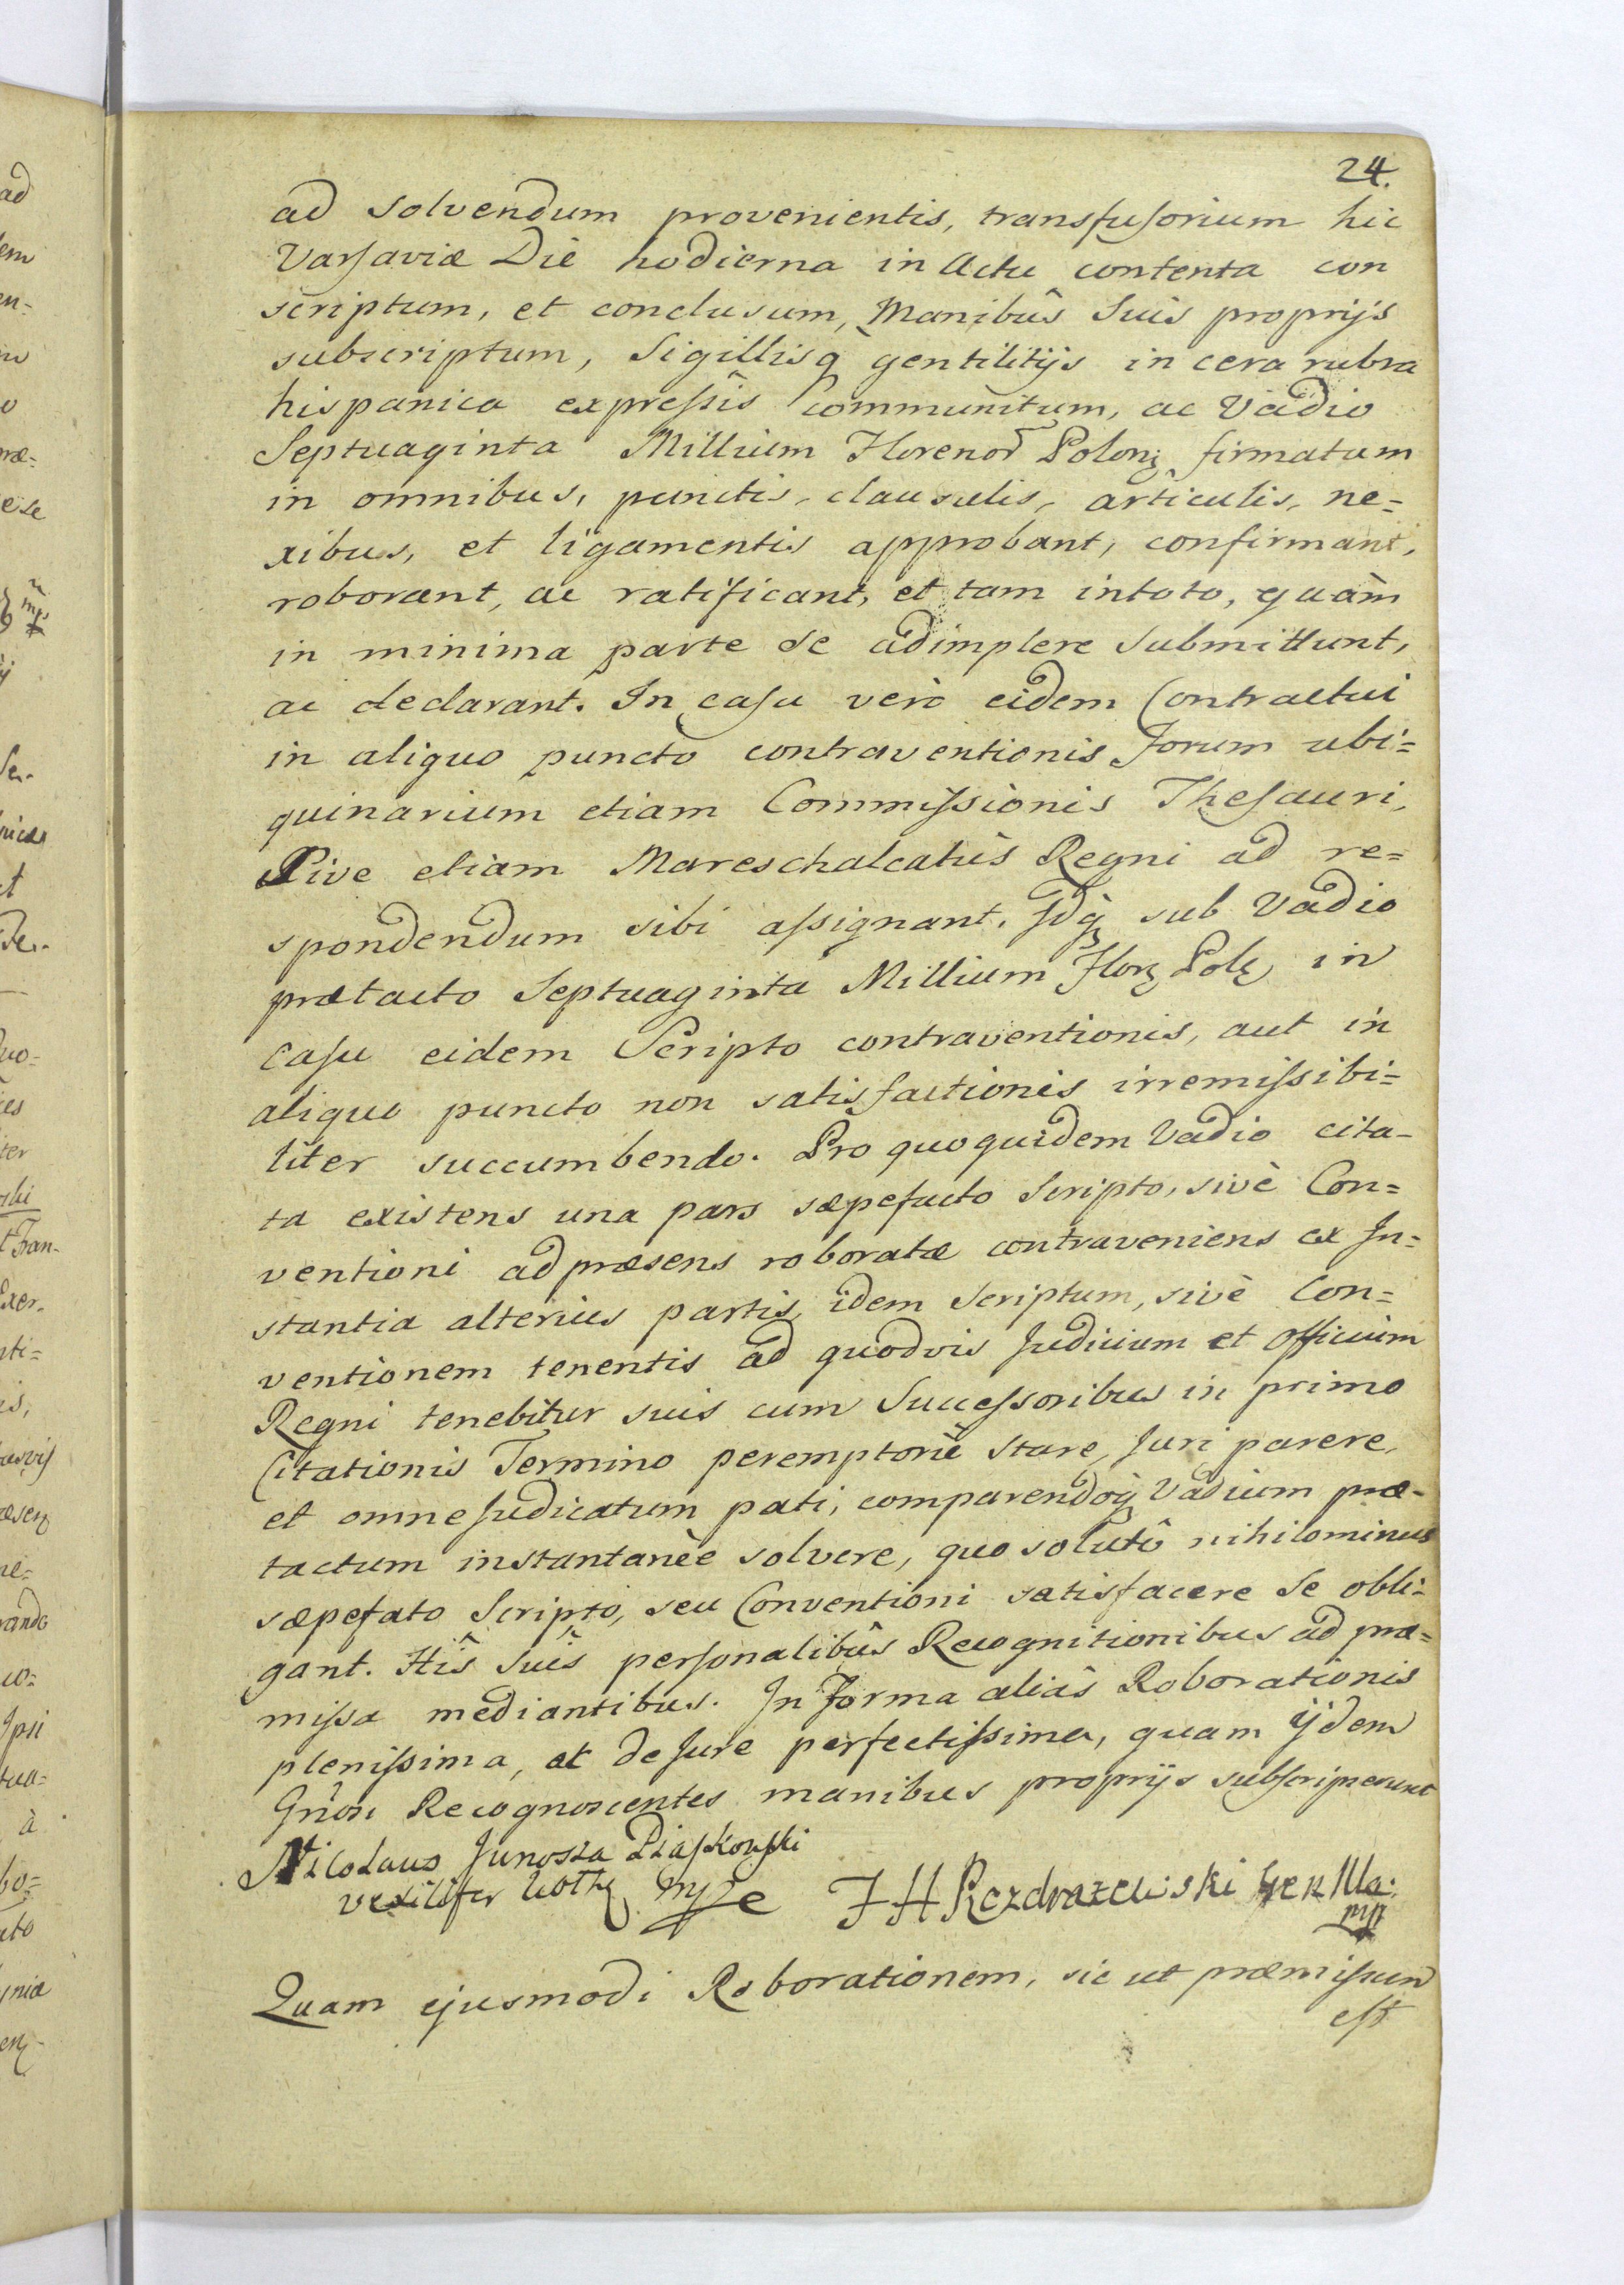 24.
ad solvendum provenientis, transfusorium hic
Varsaviæ Die hodierna in Actu contenta con
scriptum, et conclusum, Manibûs Suis proprijs
subscriptum, Sigillisq gentilitijs in cera rubra
hispanica expressîs communitum, ac Vadio
Septuaginta Millium Florenor Polon firmatum
in omnibus, punctis, clausulis, articulis, ne=
xibus, et ligamentis approbant, confirmant,
roborant, ac ratificant, et tam intoto, quàm
in minima parte se adimplere submittunt,
ac declarant. In casu verò eidem Contractui
in aliquo puncto contraventionis Forum ubi=
quinarium etiam Commissionis Thesauri,
Sive etiam Mareschalcatûs Regni ad re=
spondendum sibi assignant. Idq sub Vadio
prætacto Septuaginta Millium Flor Pol in
casu eidem Scripto contraventionis, aut in
aliquo puncto non satisfactionis irremissibi=
liter succumbendo. Pro quoquidem Vadio cita-
ta existens una pars sæpefacto Scripto, sivè Con=
ventioni adpræsens roboratæ contraveniens ex In=
stantia alterius partis, idem Scriptum, sivè Con=
ventionem tenentis ad quodvis Judicium et Officium
Regni tenebitur suis cum Successoribus in primo
Citationis Termino peremptoriè stare, Juri parere,
et omne Judicatum pati, comparendoq Vadium præ-
tactum instantanèe solvere, quo solutô nihilominus
sæpefato Scripto, seu Conventioni satisfacere se obli-
gant. Hîs Suîs personalibûs Recognitionibus ad præ=
missa mediantibus. In Forma aliâs Roborationis
plenissima, et de Jure perfectissima, quam ijdem
Gñosi Recognoscentes manibus proprijs subscripserunt
Nicolaus Junosza Piaskowski
vexilifer
J H Rozdrazewski Gen Ma:
mp
Quam ejusmodi Roborationem, sic ut præmissum
est